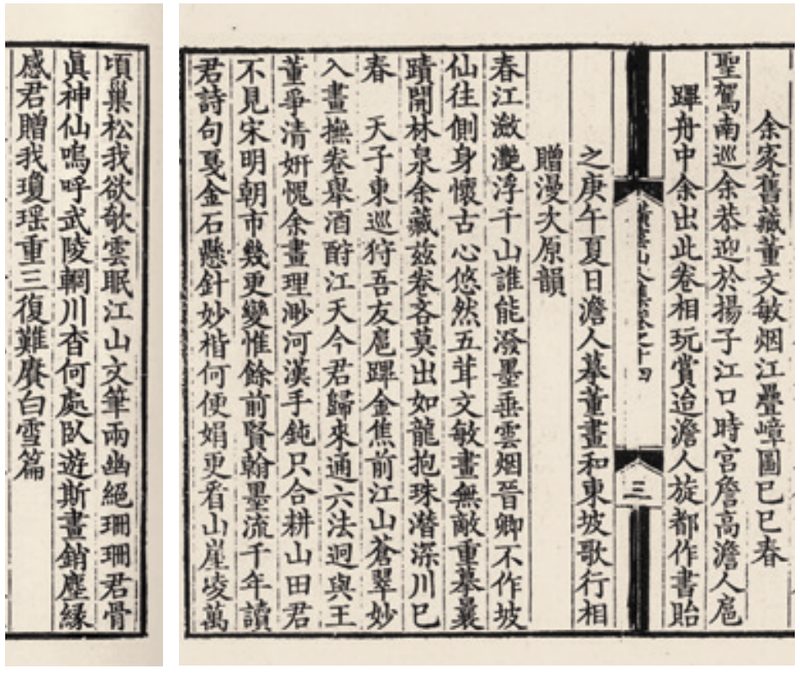 余家舊藏董文敏烟江疊嶂圖己巳春
聖駕南巡余恭迎於揚子江口時宮詹高澹人扈
蹕舟中余出此卷相玩賞迨澹人旋都作書貽
山人集卷之十四
三
之庚午夏日澹人摹董畫和東坡歌行相
贈漫次原韻
春江瀲灩浮千山誰能潑墨垂雲烟晉卿不作坡
仙往側身懷古心悠然五茸文敏畫無敵重摹曩
蹟開林泉余藏茲卷吝莫出如龍抱珠潛深川巳
春 天子東巡狩吾友扈蹕金焦前江山蒼翠妙
入畫撫卷舉酒酹江天今君歸來通六法迥與王
董爭清妍愧余畫理渺河漢手鈍只合耕山田君
不見宋明朝市幾更變惟餘前賢翰墨流千年讀
君詩句戛金石懸針妙楷何便娟更看山崖崚萬
頃巢松我欲欹雲眠江山文筆兩幽絕珊珊君骨
眞神仙嗚呼武陵輞川杳何處臥遊斯畫銷塵緣
感君贈我瓊瑤重三復難賡白雪篇